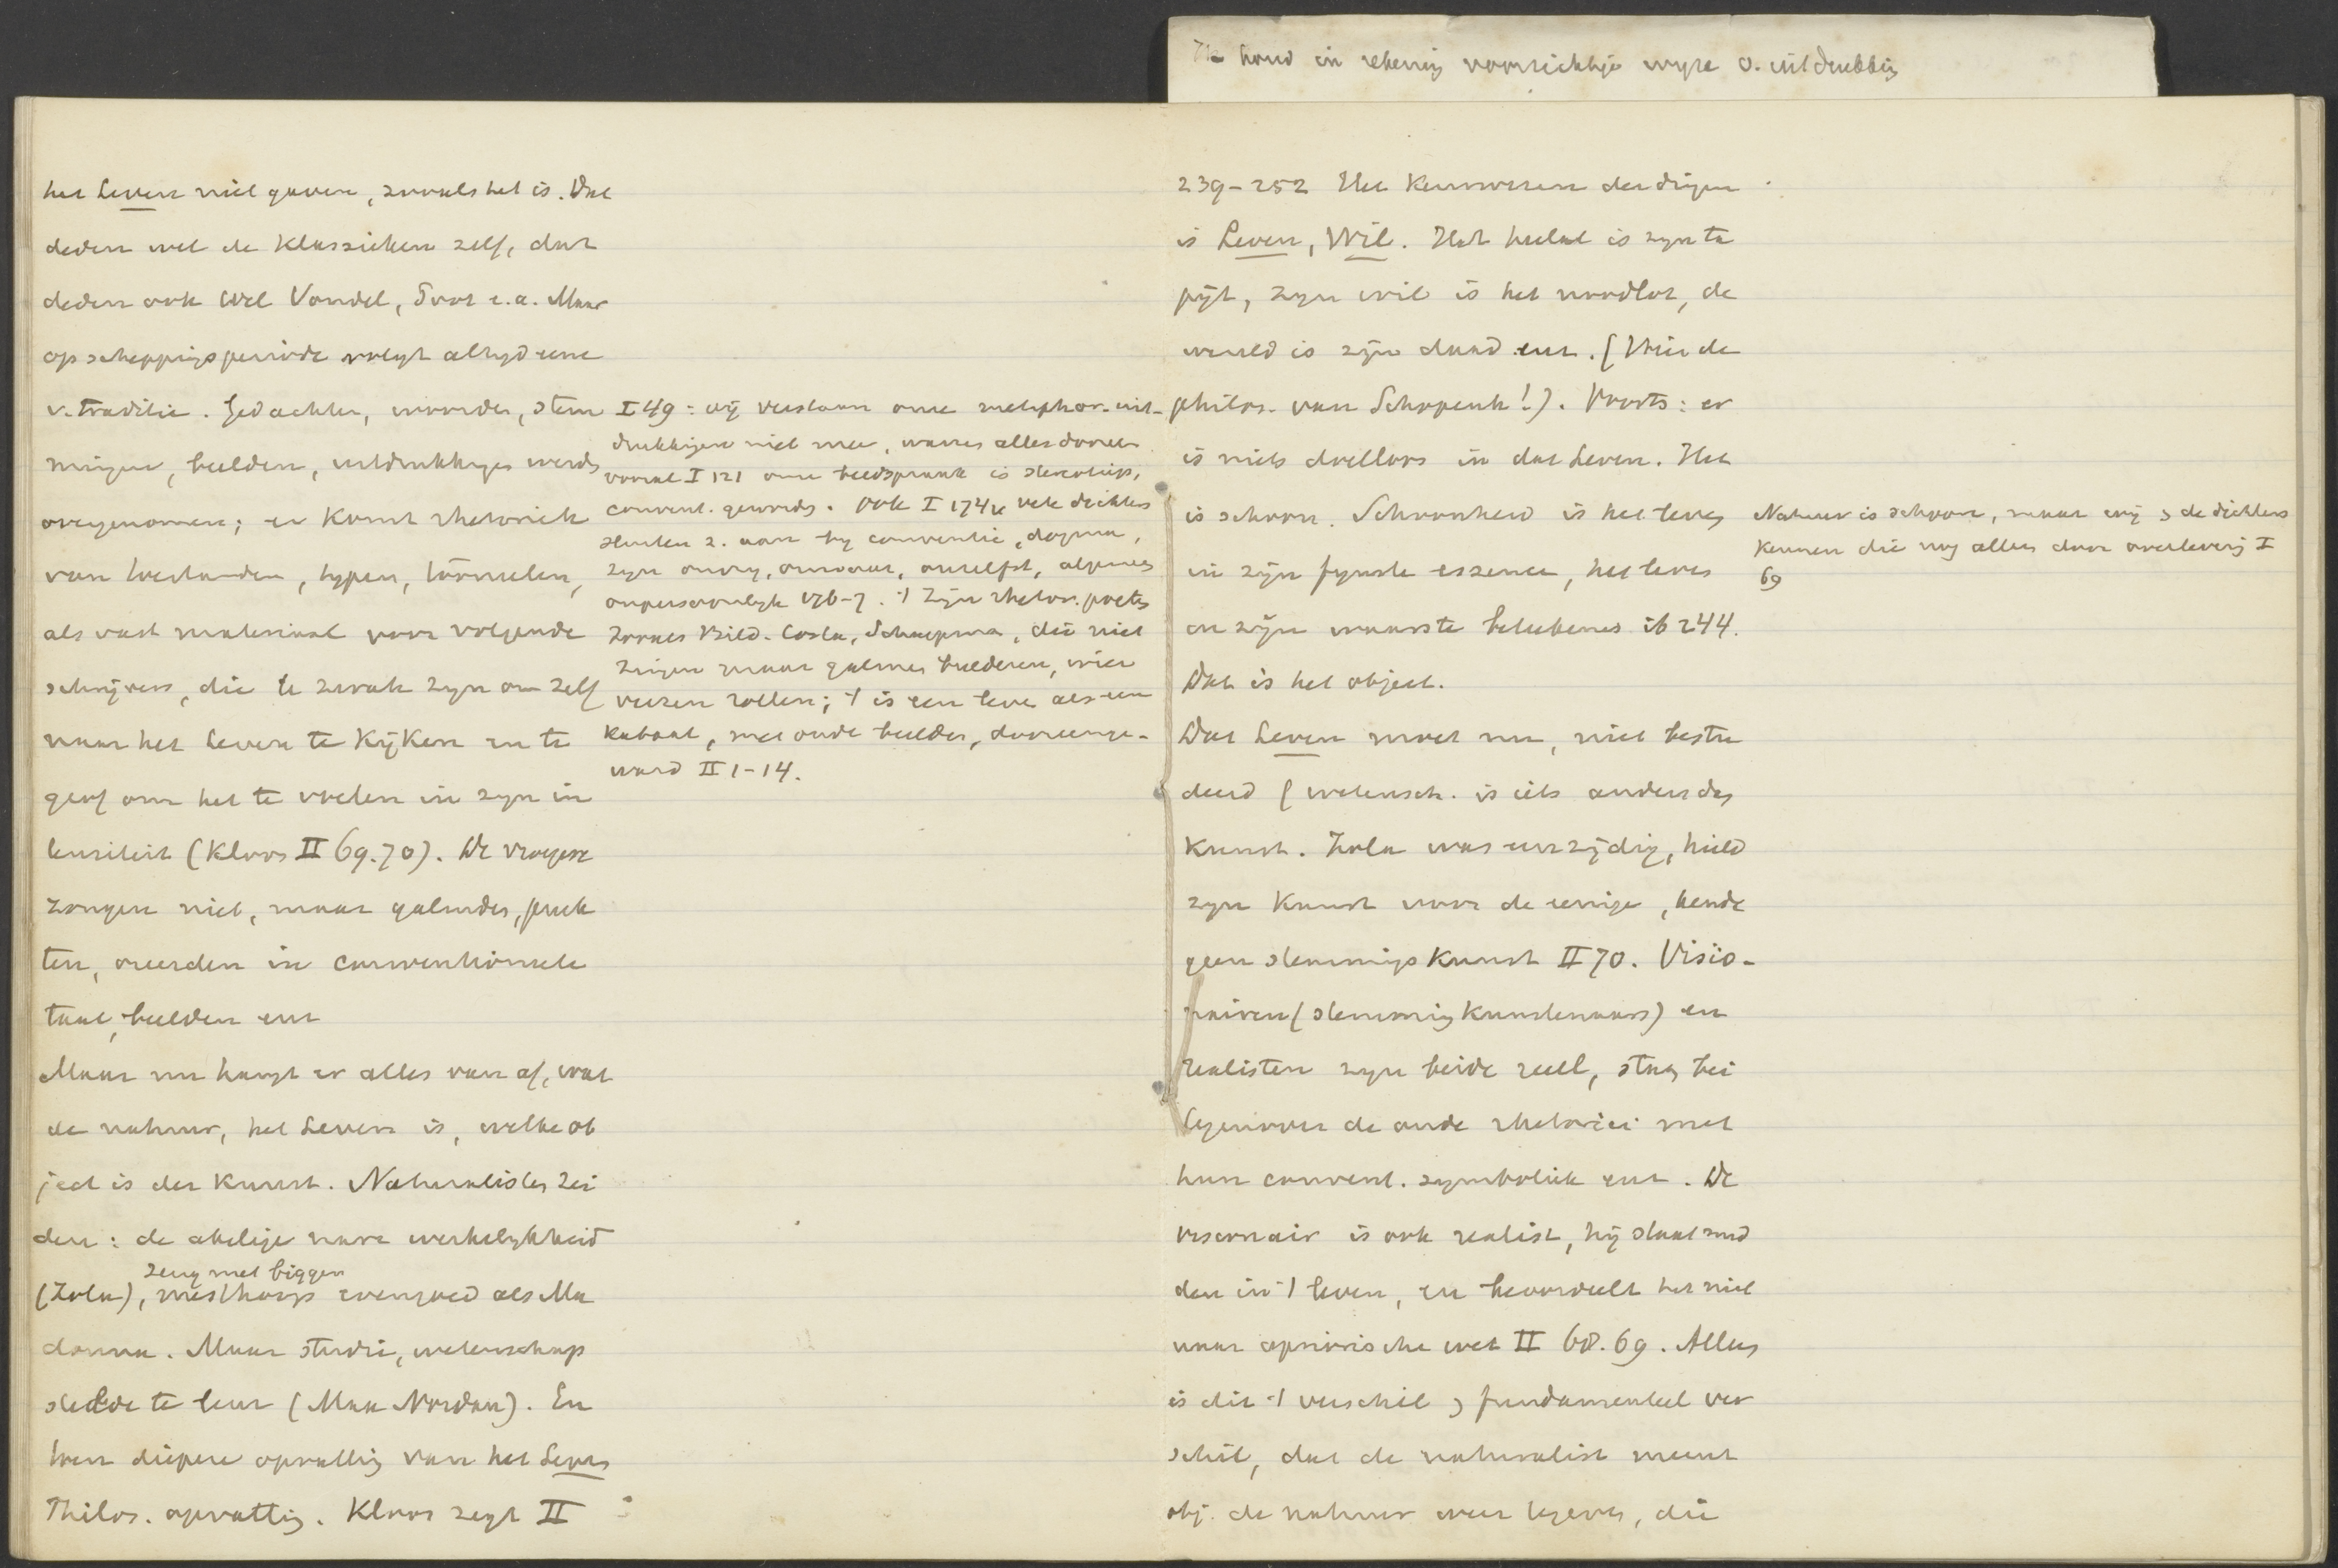 houd in rekening voorzichtige wyze v. uitdrukking
het Leven niet gaven, zooals het is. Dat
deden wel de Klassieken zelf, dat
deden ook wel Vondel, Poot e.a. Maar
op scheppingsperiode volgt altyd eene
v. traditie. Gedachten, woorden, stem
mingen, beelden, uitdrukkingen werden
overgenomen; er komt rhetoriek
van bestanden, typen, formulen,
als vast materiaal voor volgende
schrijvers, die te zwak zyn om zelf
naar het Leven te kijken en te
grof om het te voelen in zyn in
tensiteit (Kloos II 69.70). De vroegere
zongen niet, maar galmden, preek
ten, oreerden in conventioneele
taal, beelden enz
Maar nu hangt er alles van af, wat
de natuur, het Leven is, welke ob
ject is der Kunst. Naturalisten zei
den: de akelige nare werkelykheid
zeug met biggen
(Zola), mesthoop evengoed als Ma
donna. Maar studie, wetenschap
stelde te leur (Max Nordau). En
toen diepere opvatting van het Leven
Philos. opvatting. Kloos zegt II
I 49: wij verstaan onze metaphor. uit-
drukkingen niet meer, warren alles dooreen
vooral I 121 onze beeldspraak is stereotiep,
convent. geworden. Ook I 174 vele dichters
sluiten z. aan by conventie, dogma,
zyn onvry, onwaar, onzelfst, algemeen
onpersoonlyk 176-7. 't Zyn rhetor. poeten
zooals Bild. Costa, Schaepman, die niet
zingen maar galmen bulderen, wier
verzen rollen; 't is een leven als een
Kabaal, met oude beelden, dooreenge-
ward II 1-14.
239-252 Het Kennwezen der dingen
is Leven, Wil. Het heelal is zyn ta
pijt, zyn wil is het noodlot, de
wereld is zijn daad enz. (Zie de
philos. van Schopenh!). Voorts: er
is niets doelloos in dat Leven. Het
is schoon. Schoonheid is het leven
in zijn fynste essence, het leven
in zijn waarste beteekenis ib 244.
Dat is het object.
Dat Leven moet nu, niet bestu
deerd (wetensch. is iets anders dan
Kunst. Zola was eenzijdig, hield
zyn Kunst voor de eenige, kende
geen stemmingsKunst II 70. Visio-
nairen (stemmingKunstenaars) en
realisten zyn beide reëel, staan bei
tegenover de oude rhetorici met
hun convent. symboliek enz. De
visionair is ook realist, hij staat mid
den in 't leven, en beoordeelt het niet
naar aprioristische wet II 68.69. Alleen
is dit 't verschil, fundamenteel ver
schil, dat de naturalist meent
obj. de natuur weer tegeven, die
Natuur is schoon, maar wij de dichters
kennen die nog alleen door overlevering I
69